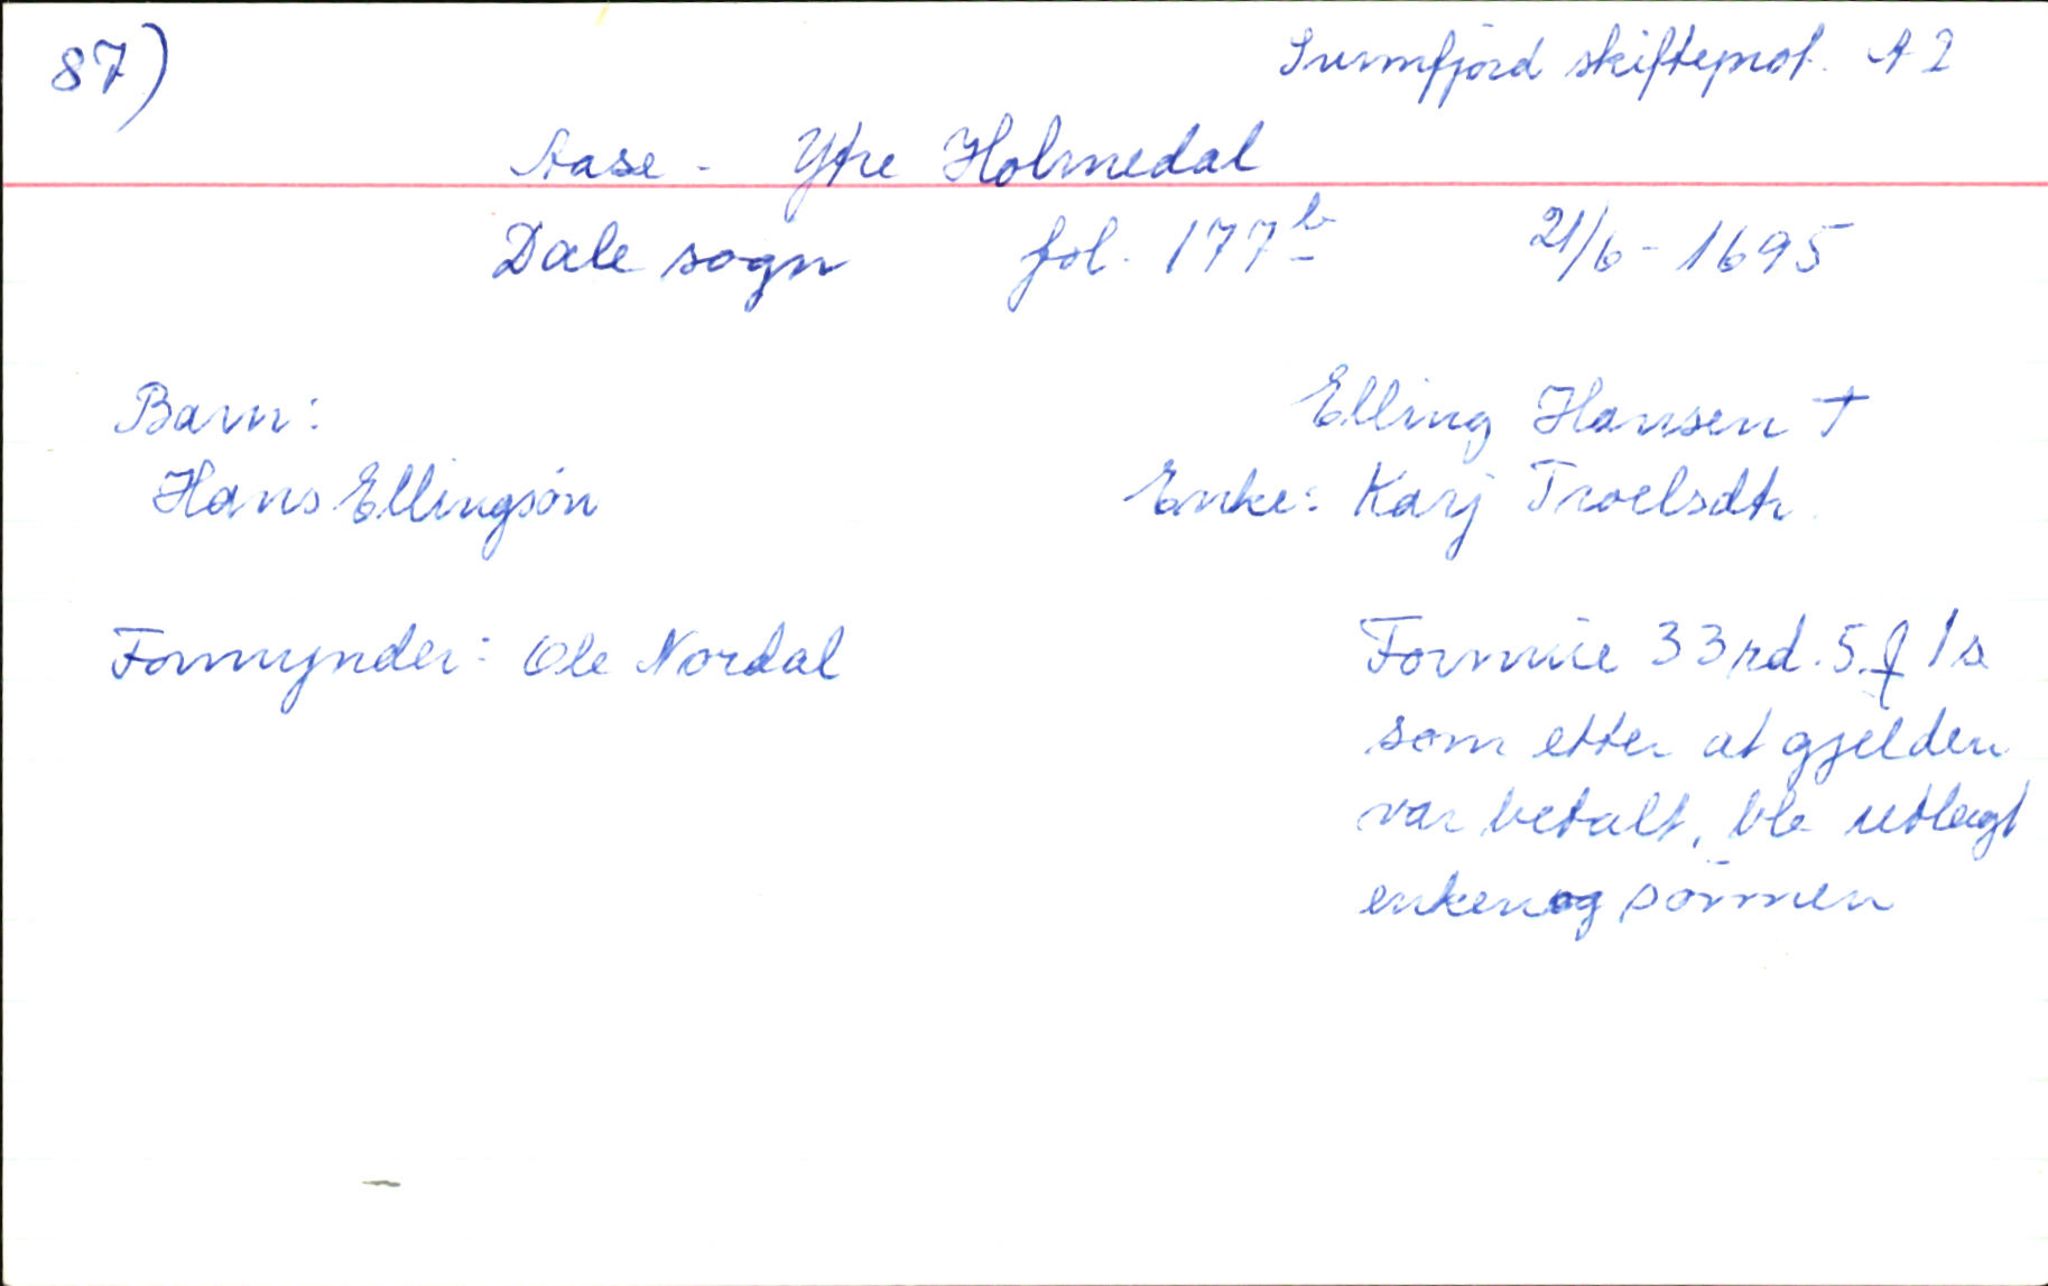 87)
Sunnfjord skifteprot. A 2
Aase - Ytre Holmedal
Dale sogn fol. 177b 21/6 - 1695
Barn: Elling Hansen †
Hans Ellingsön Enke: Karj Troelsdtr.
Formynder: Ole Nordal Formue 33 rd. 5 1 s
som etter at gjelden
var betalt, ble utlagt
enken og sönnen